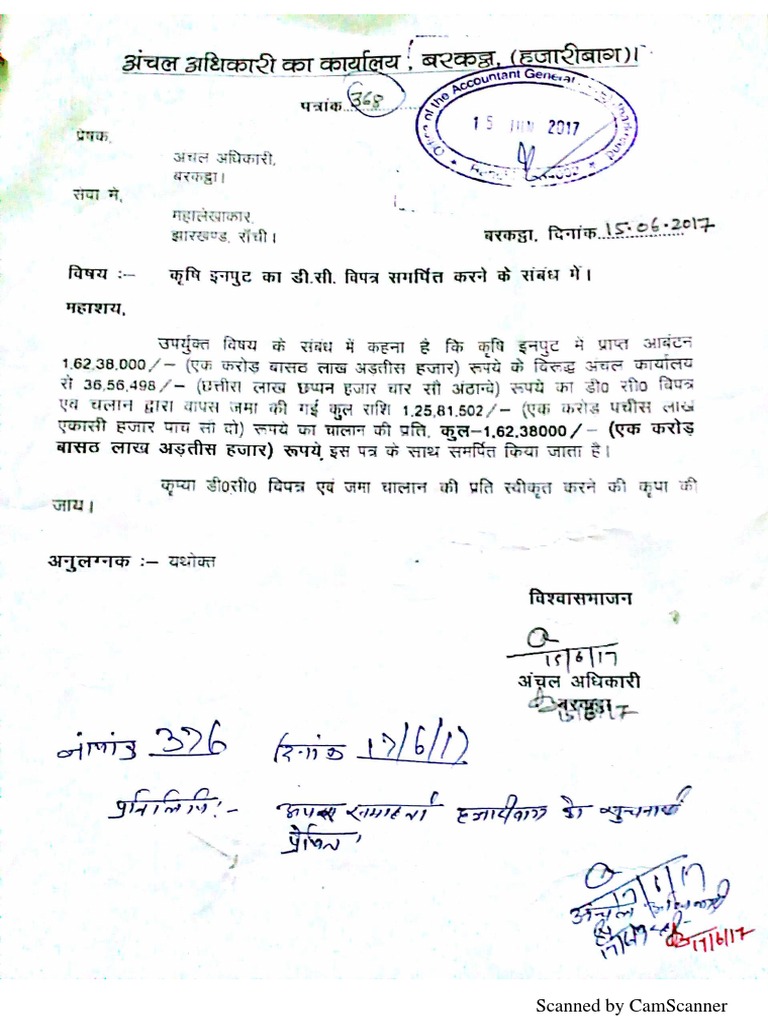 अंचल अधिकारी का कार्यालय, बरकट्ठा, (हजारीबाग)।
पत्रांक 368
Office of the Accountant General
15 JUN 2017
प्रेषक,
अंचल अधिकारी,
बरकट्ठा।
सेवा में,
महालेखाकार,
झारखण्ड, राँची।
बरकट्ठा, दिनांक 15.06.2017
विषय :– कृषि इनपुट का डी.सी. विपत्र समर्पित करने के संबंध में।
महाशय,
उपर्युक्त विषय के संबंध में कहना है कि कृषि इनपुट मे प्राप्त आबंटन
1,62,38,000/– (एक करोड़ बासठ लाख अड़तीस हजार) रूपये के विरूद्ध अंचल कार्यालय
से 36,56,498/– (छत्तीस लाख छप्पन हजार चार सौ अंठान्वे) रूपये का डी0 सी0 विपत्र
एवं चलान द्वारा वापस जमा की गई कुल राशि 1,25,81,502/– (एक करोड़ पचीस लाख
एकासी हजार पाच सौ दो) रूपये का चालान की प्रति, कुल–1,62,38000/– (एक करोड़
बासठ लाख अड़तीस हजार) रूपये, इस पत्र के साथ समर्पित किया जाता है।
कृप्या डी0सी0 विपत्र एवं जमा चालान की प्रति स्वीकृत करने की कृपा की
जाय।
अनुलग्नक :– यथोक्त
विश्वासभाजन
15/6/17
अंचल अधिकारी
बरकट्ठा
376 दिनांक 17/6/17
प्रतिलिपि:- अपर समाहर्ता हजारीबाग को सूचनार्थ
प्रेषित।
17/6/17
अंचल अधिकारी
17/6/17
Scanned by CamScanner